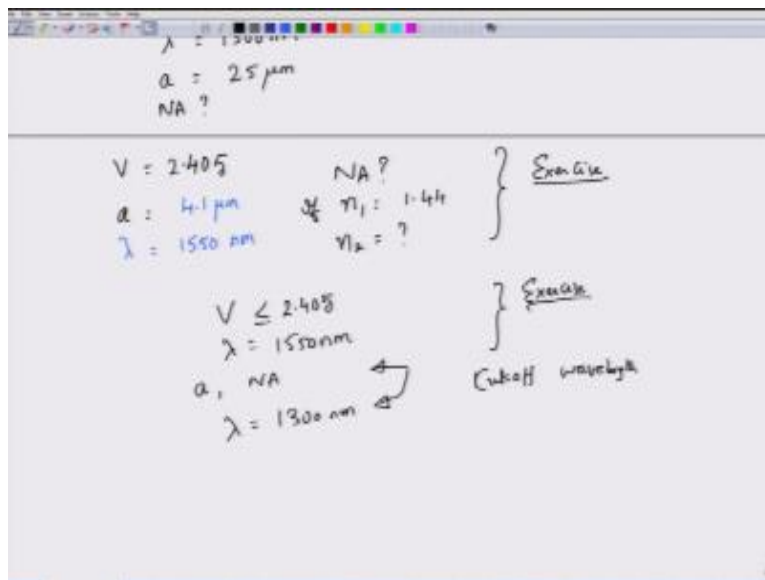 λ = 1300 nm
a = 25 μm
NA ?
V = 2.405
a = 4.1 μm
λ = 1550 nm
NA?
if n₁ = 1.44
n₂ = ?
Exercise
V ≤ 2.405
λ = 1550nm
a, NA
λ = 1300 nm
Exercise
Cutoff wavelength